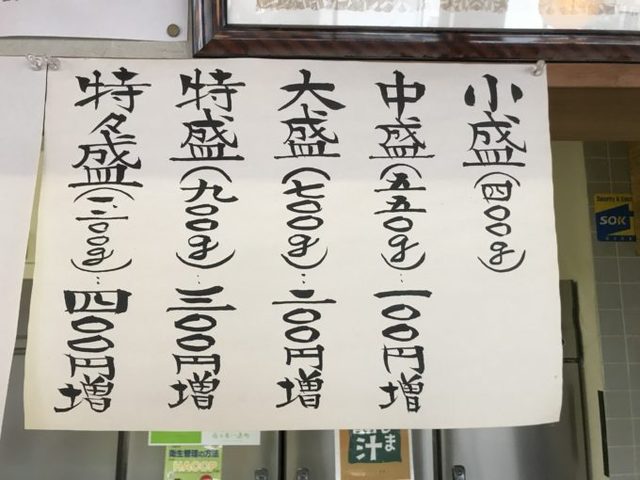 小盛(四〇〇g)
中盛(五五〇g)…一〇〇円増
大盛(七〇〇g)…二〇〇円増
特盛(九〇〇g)…三〇〇円増
特々盛(一、二〇〇g)…四〇〇円増
SOK
衛生管理の方法
HACCP
汁